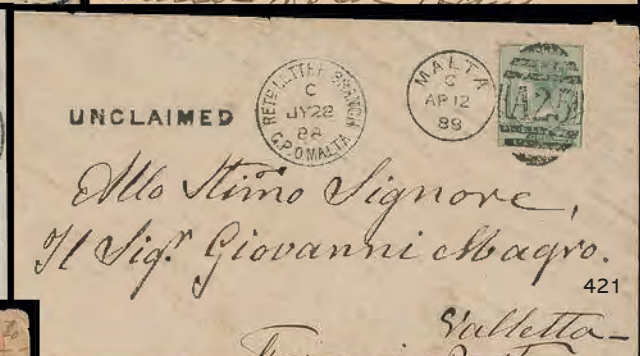 UNCLAIMED
RETD LETTER BRANCH
C
JY 28
88
G.P.O MALTA
MALTA
C
AP 12
88
A25
Allo Stimo Signore,
Il Sigr Giovanni Magro.
421
Valletta